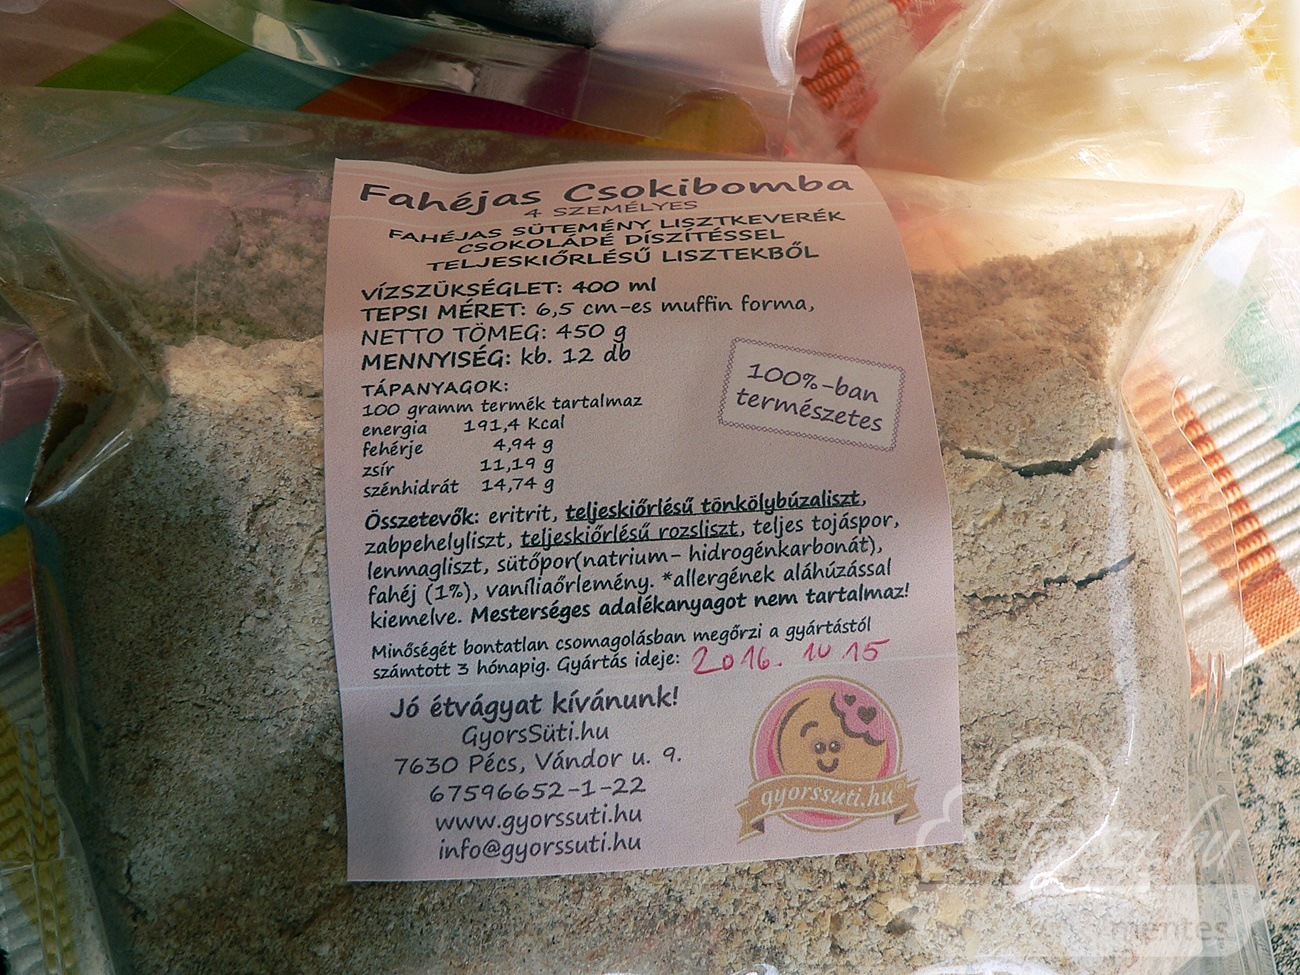 Fahéjas Csokibomba
4 SZEMÉLYES
FAHÉJAS SÜTEMÉNY LISZTKEVERÉK
CSOKOLÁDÉ DÍSZÍTÉSSEL
TELJESKIŐRLÉSŰ LISZTEKBŐL
VÍZSZÜKSÉGLET: 400 ml
TEPSI MÉRET: 6,5 cm-es muffin forma,
NETTO TÖMEG: 450 g
MENNYISÉG: kb. 12 db
100%-ban
természetes
TÁPANYAGOK:
100 gramm termék tartalmaz
energia 191,4 Kcal
fehérje 4,94 g
zsír 11,19 g
szénhidrát 14,74 g
Összetevők: eritrit, teljeskiőrlésű tönkölybúzaliszt,
zabpehelyliszt, teljeskiőrlésű rozsliszt, teljes tojáspor,
lenmagliszt, sütőpor(natrium- hidrogénkarbonát),
fahéj (1%), vaníliaőrlemény. *allergének aláhúzással
kiemelve. Mesterséges adalékanyagot nem tartalmaz!
Minőségét bontatlan csomagolásban megőrzi a gyártástól
számtott 3 hónapig. Gyártás ideje: 2016. 10 15
Jó étvágyat kívánunk!
GyorsSüti.hu
7630 Pécs, Vándor u. 9.
67596652-1-22
www.gyorssuti.hu
info@gyorssuti.hu
gyorssuti.hu
mentes